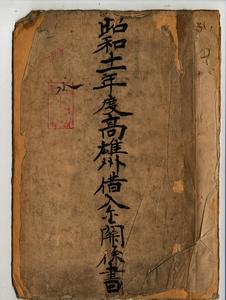 昭和十一年度高雄州借入金関係書
永